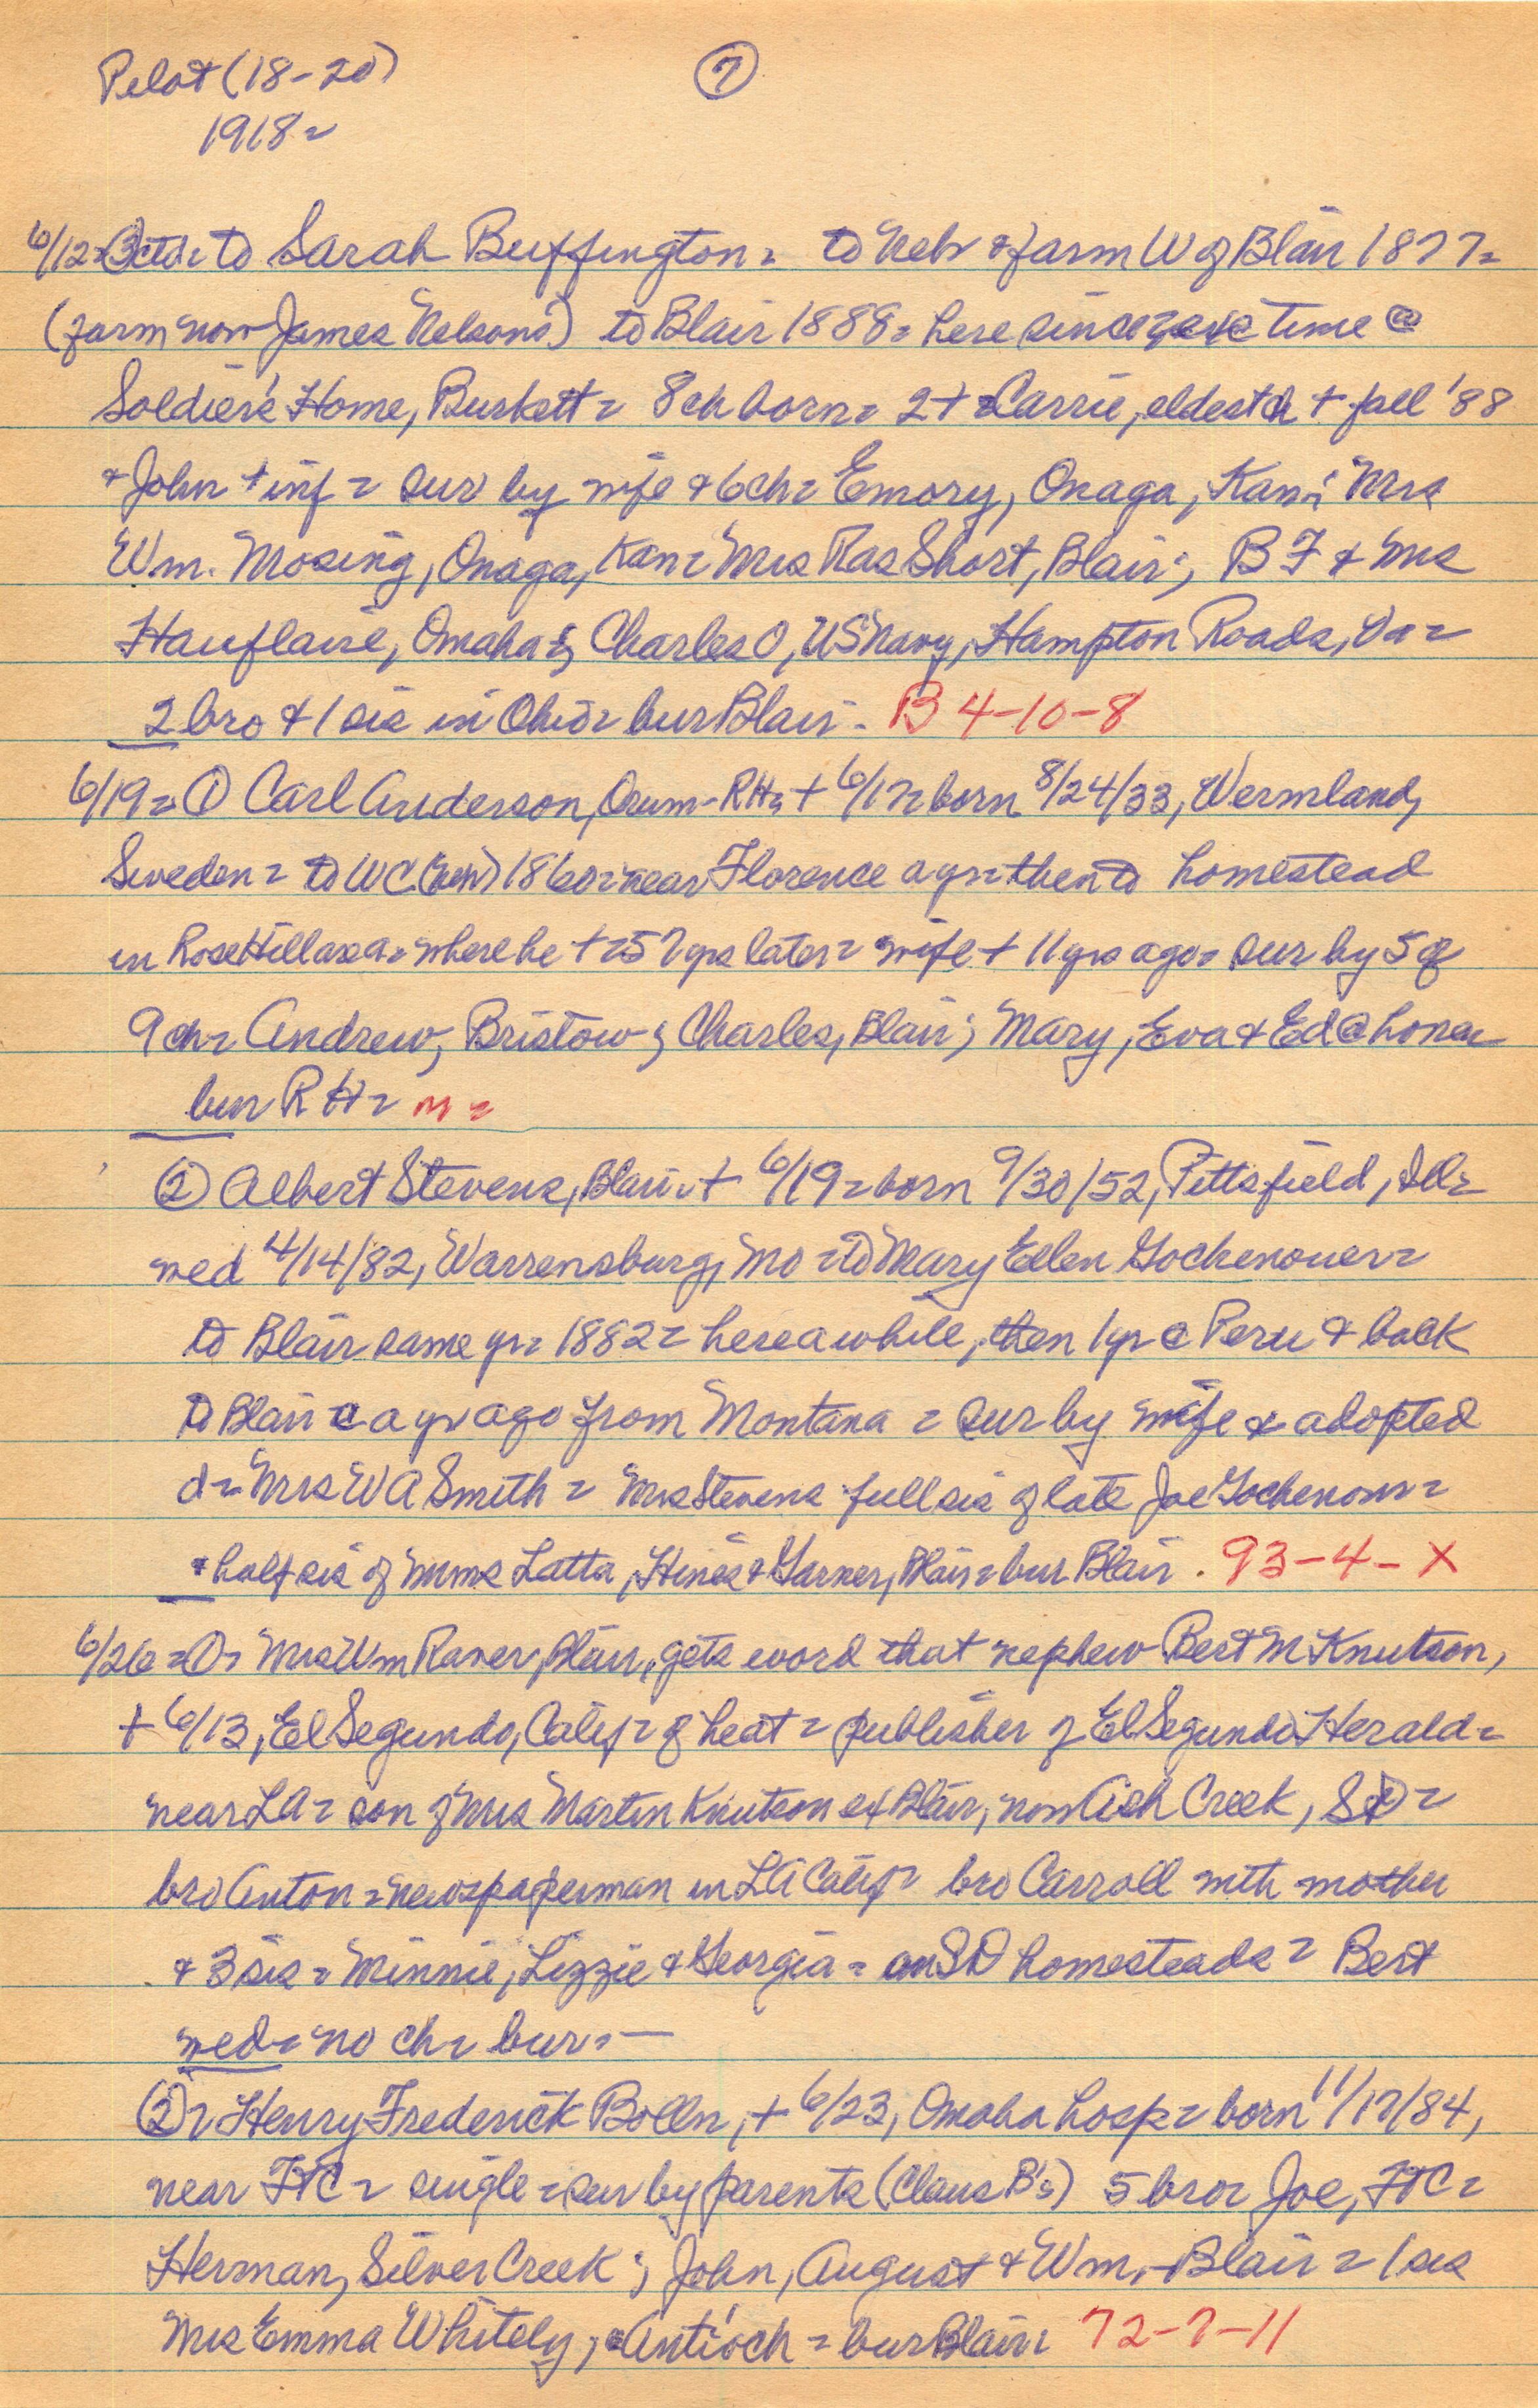 Pilot (18-20) ⑦
1918=
6/12=③ctd= to Sarah Buffington= to Neb & farm W of Blair 1877=
(farm now James Nelsons) to Blair 1888= here since time @
Soldier's Home, Burkett= 8 ch born= 2 + Carrie, eldest ch + fall '88
& John + inf= sur by wife & 6 ch= Emory, Onaga, Kan; Mrs
Wm. Mosing, Onaga, Kan= Mrs Ras Short, Blair; B F & Mrs
Hauflaire, Omaha &; Charles O, US Navy, Hampton Roads, Va=
2 bro & 1 sis in Ohio= bur Blair- B 4-10-8
6/19=① Carl Anderson, Orum-RH= + 6/17= born 8/24/33, Wermland,
Sweden= to WC (Neb) 1860= near Florence a yr= then to homestead
in Rose Hill area= where he + =57 yrs later= wife + 11 yrs ago= sur by 5 of
9 ch= Andrew, Bristow; Charles, Blair; Mary, Eva & Ed @ home
bur RH= m=
② Albert Stevens, Blair= + 6/19= born 9/30/52, Pittsfield, Ill=
wed 4/14/82, Warrensburg, Mo= to Mary Ellen Gochenouer=
to Blair same yr= 1882= here a while, then 1 yr @ Peru & back
to Blair a yr ago from Montana= sur by wife & adopted
d= Mrs W A Smith= Mrs Stevens full sis of late Joe Gochenour=
& half sis of Mmes Latta, Hines & Garner, Blair= bur Blair. 93-4-X
6/26=①= Mrs Wm Raver, Blair, gets word that nephew Bert M Knutson,
+ 6/13, El Segundo, Calif= of heat= publisher of El Segundo Herald=
near LA= son of Mrs Martin Knutson ex Blair, now Ash Creek, SD=
bro Anton= newspaperman in LA Calif= bro Carroll with mother
& 3 sis= Minnie, Lizzie & Georgia= on SD homesteads= Bert
wed= no ch= bur=—
②= Henry Frederick Bolln, + 6/23, Omaha hosp= born 11/17/84,
near FtC= single= sur by parents (Claus B's) 5 bro= Joe, FtC=
Herman, Silver Creek; John, August & Wm,-Blair= 1 sis
Mrs Emma Whitely, Antioch= bur Blair= 72-7-11